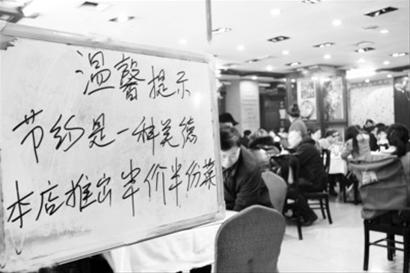 温馨提示
节约是一种美德
本店推出半价半份菜